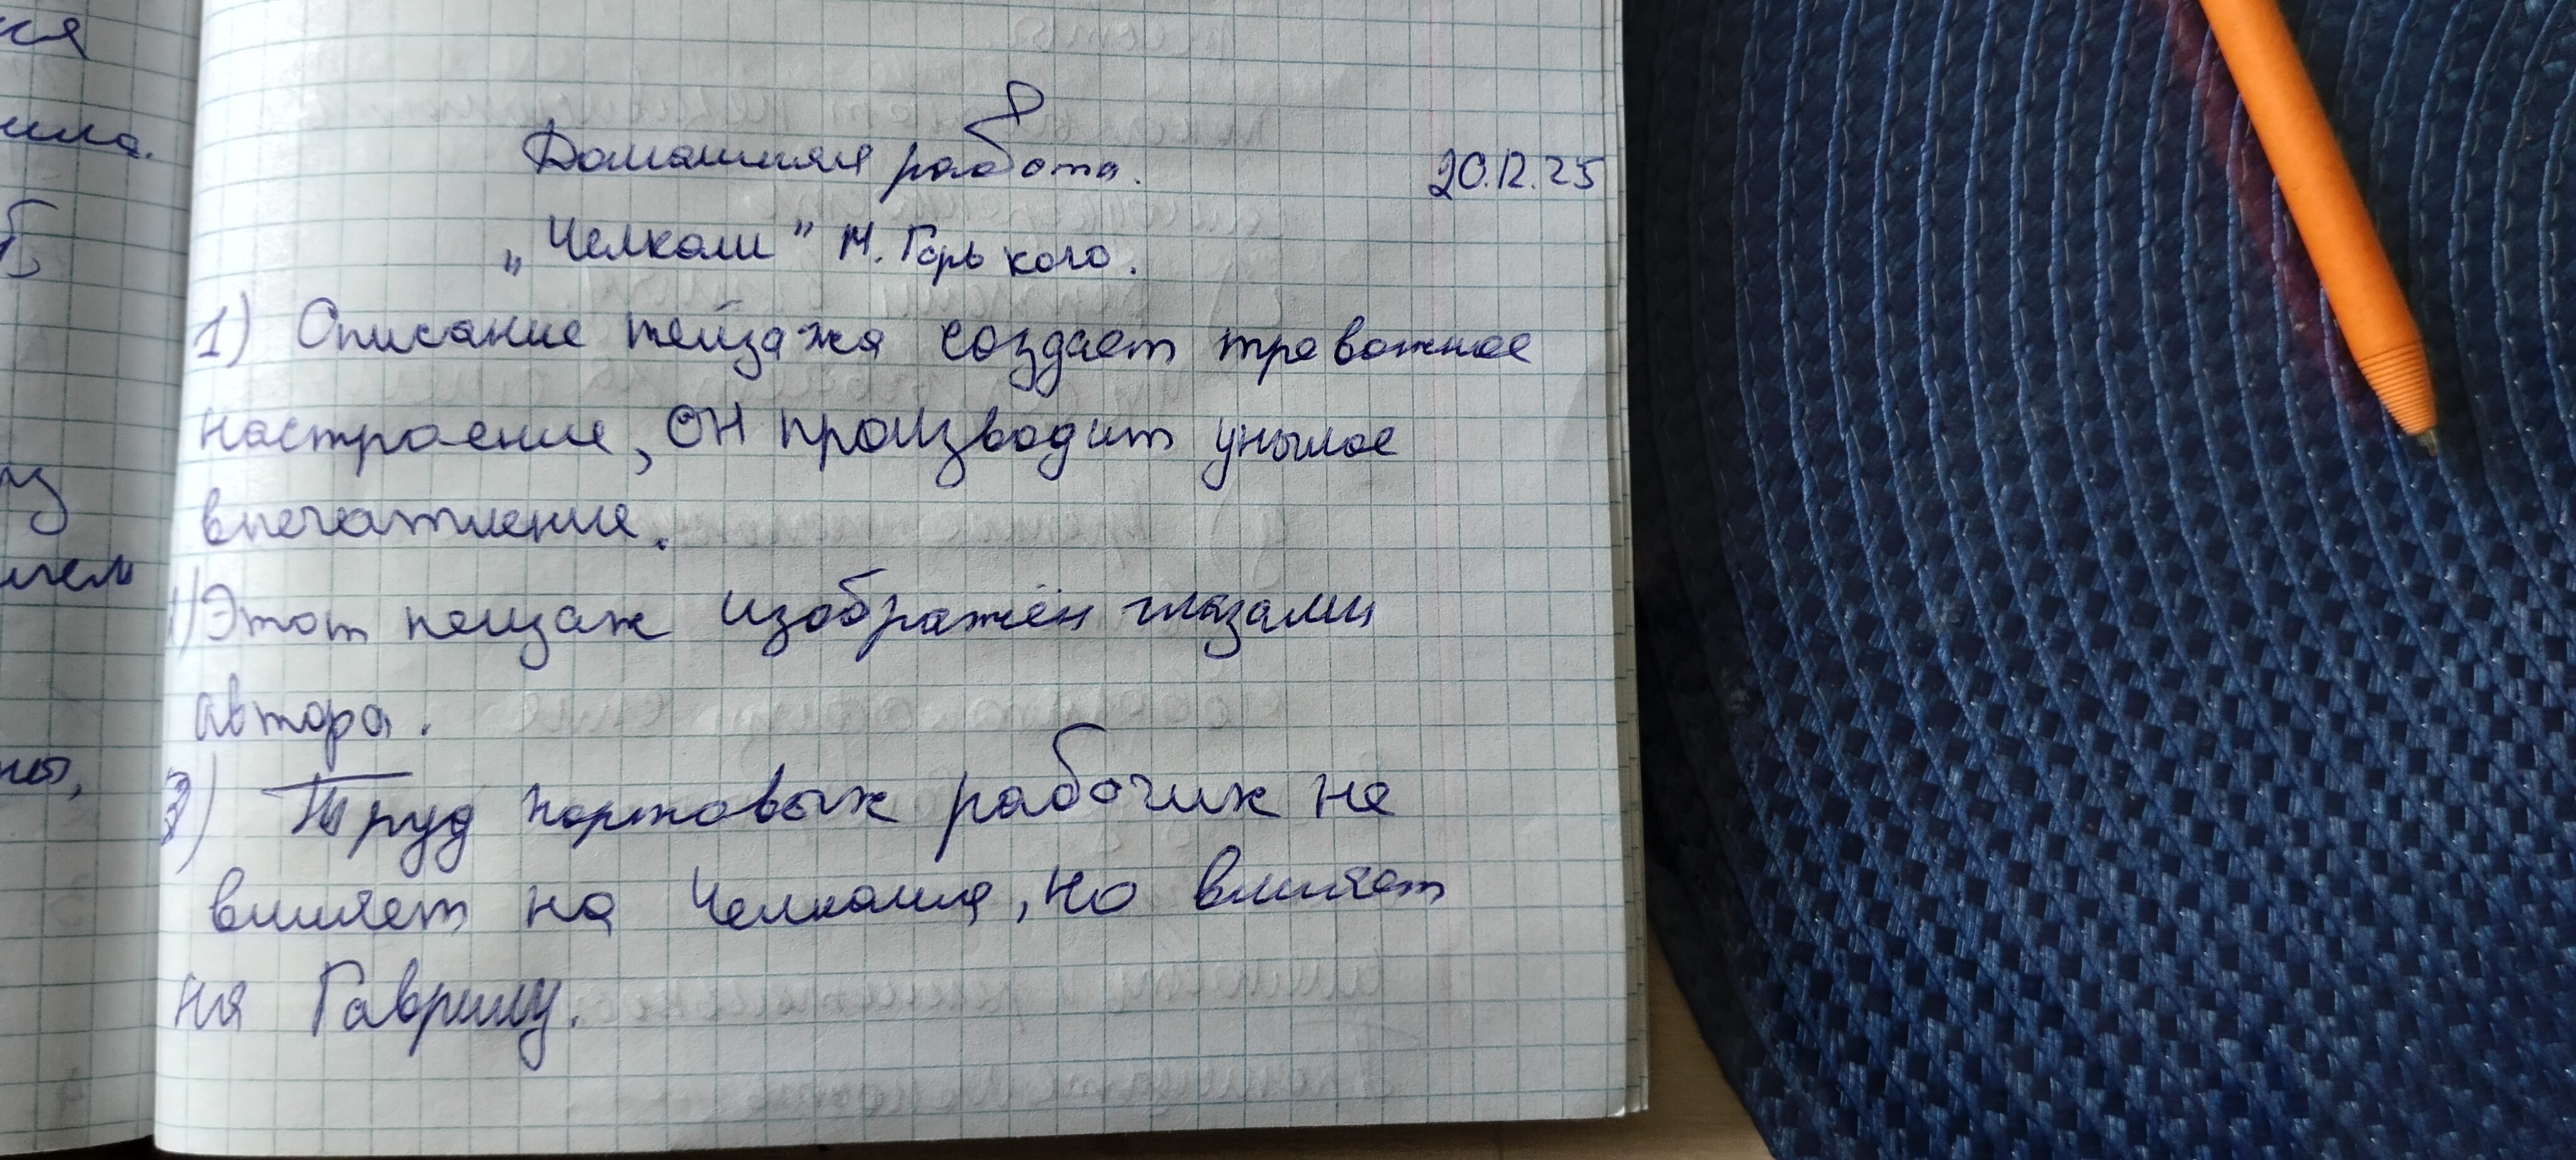 ся
ила.
Домашняя работа. 20.12.25
„Челкаш" М. Горького.
1) Описание пейзажа создает тревожное
настроение, ОН производит унылое
впечатление.
Этот пейзаж изображён глазами
автора.
3) Труд портовых рабочих не
влияет на Челкаша, но влияет
на Гаврилу.